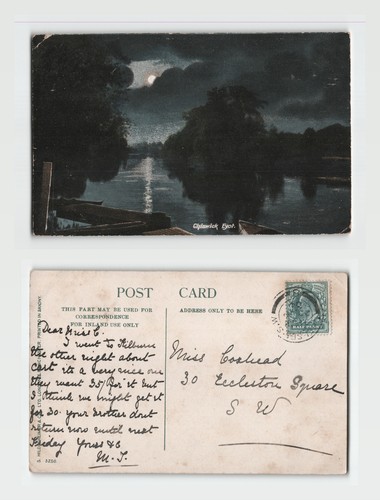 Chiswick Eyot.
POST CARD
THIS PART MAY BE USED FOR
CORRESPONDENCE
FOR INLAND USE ONLY
ADDRESS ONLY TO BE HERE
Dear Miss C.
I went to Kilburn
the other night about
cart its a very nice one
they want 35/ for it but
I think we might get it
for 30. your brother dont
return now until next
Friday Yours &c
M. T.
Miss Coxhead
30 Eccleston Square
S W
HALF PENNY
PRINTED IN SAXONY